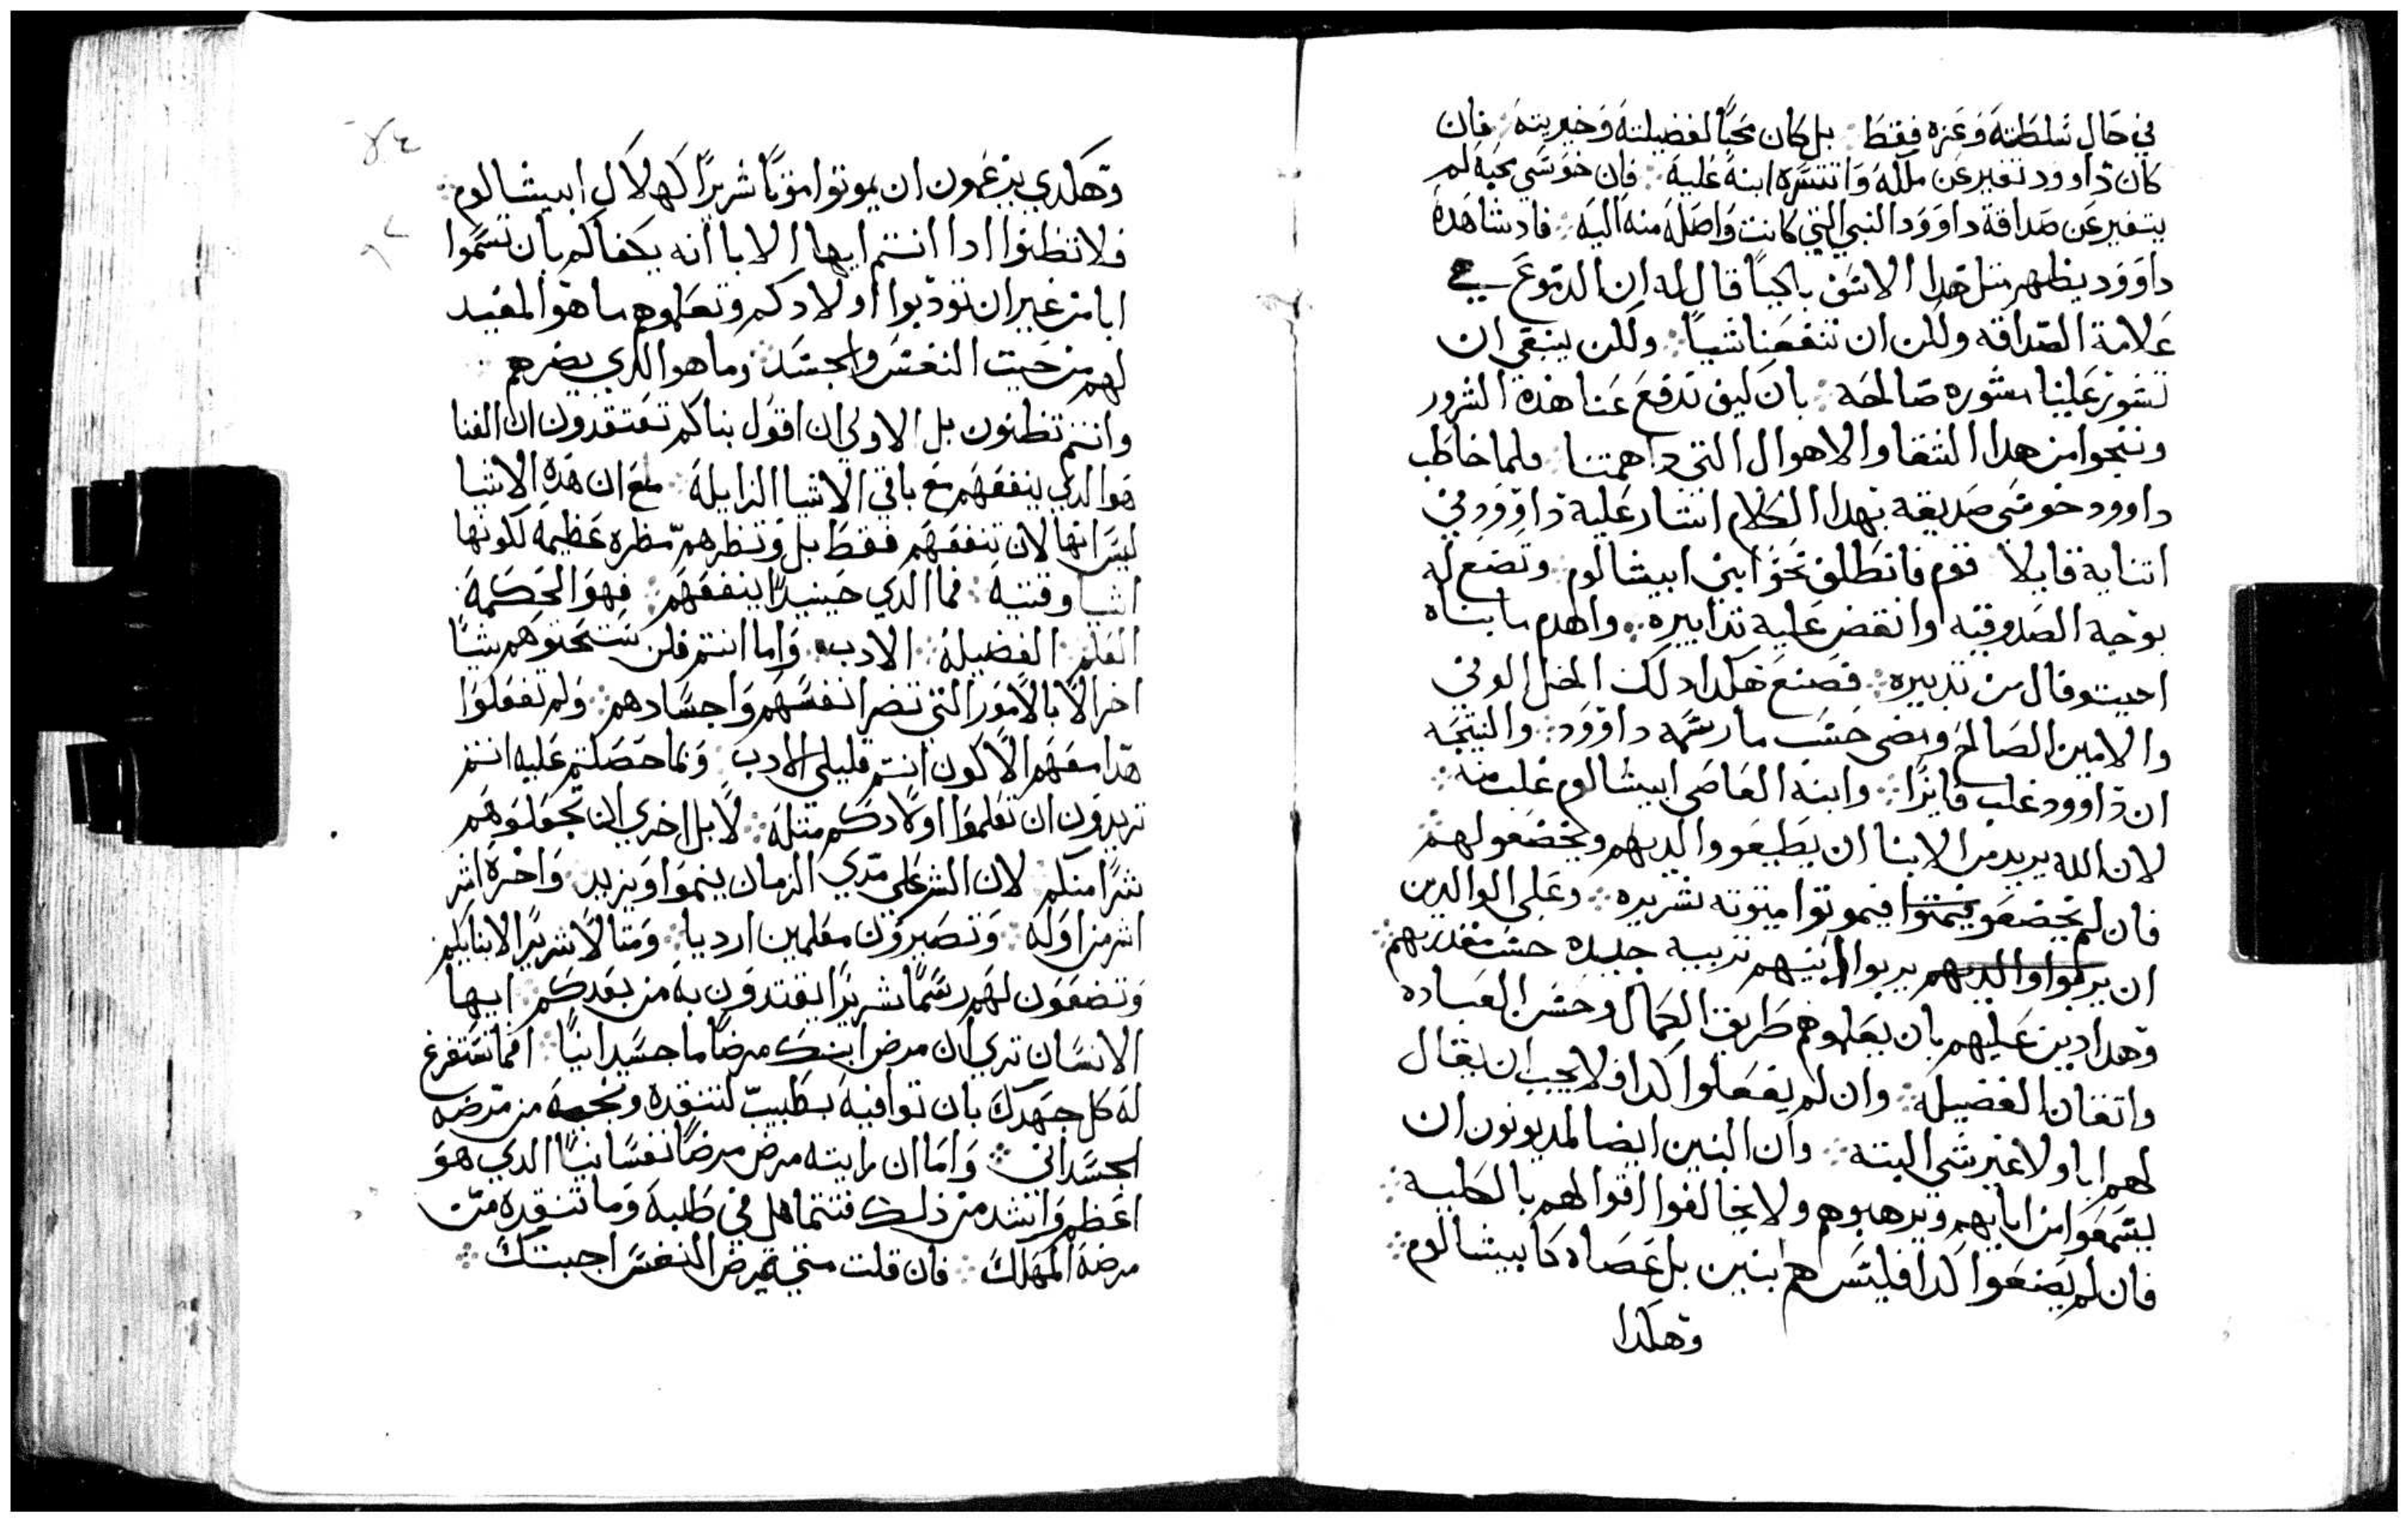 في حال سلطته وعزه فقط ჻ بل كان محبًا لفضيلته وخيريته ჻ فان
كان داوود تغير عن ملكه وانتشره ابنه عليه ჻ فان خوسي محبه لم
يتغير عن صداقة داوود النبي التي كانت واصله منه اليه ჻ فاد شاهده
داوود يظهر مثل هدا الاسف باكيًا قال له ان الدموع هي
علامة الصداقه ولكن ان تنفعنا شيًا ჻ ولكن ينبغي ان
تشور علينا مشوره صالحه ჻ بان كيف ندفع عنا هذه الشرور
وننجوا من هدا الشقا والاهوال التي داهمتنا ჻ فلما خاطب
داوود خوسي صديقه بهدا الكلام اشار عليه داوود في
اتنايه قايلا قوم فانطلق نحو ابني ابيشالوم ჻ وتضع له
بوجه الصدوقيه وانقض عليه تدابيره ჻ واهدم ما بناه
احيتوفال من تدبيره ჻ فصنع هكدا دلك الخل الوفي
والامين الصالح ومضى حسب ما رسمه داوود ჻ والنتيجه
ان داوود غلب فايزًا ჻ وابنه العاصي ابيشالوم غلب منه ჻
لان الله يريد من الابنا ان يطيعو والديهم ويخضعو لهم ჻
فان لم يخضعو فيمتوا فيموتوا ميتوته شريره ჻ وعلى الوالدين
ان يركموا والديهم يربوا ابنيهم تربيه جليده حسب مقدرتهم ჻
وهدا دين عليهم بان يعلموهم طريق الكمال وحسن العباده
واتقان الفضيله ჻ وان لم يفعلوا كدا فلا يجب ان يقال
لهم ابا ولا غير شي البته ჻ وان البنين ايضا لمديونون ان
يسمعوا من ابايهم ويرهبوهم ولا يخالفوا اقوالهم بالكليه ჻
فان لم يصنعوا كدا فليس هم بنين بل عصاه كابيشالوم ჻
وهكدا
وهكدي يزعمون ان يموتوا موتًا شريرًا كهلاك ابيشالوم ჻
فلا تظنوا ادا انتم ايها الابا انه يكفاكم بان تسموا
ابا من غير ان تودبوا اولادكم وتعلموهم ما هو المفيد
لهم من حيت النفس والجسد ჻ وما هو الدي يضرهم
وانتم تظنون بل الاولي ان اقول بناكم تعتقدون ان الغنا
هو الدي ينفعهم مع باقي الاشيا الزايله ჻ مع ان هده الاشيا
ليس انها لان تنفعهم فقط بل وتضرهم مضره عظيمه لكونها
اشيا وقتيه ჻ فما الدي حينيدًا ينفعهم ჻ فهو الحكمه
العلم ჻ الفضيله ჻ الادب ჻ واما انتم فلن ستمنحوهم شيًا
اخر الا بالامور التي تضر انفسهم واجسادهم ჻ ولم تفعلوا
هدا معهم الا لكون انتم قليلى الادب ჻ وبما حصلتم عليه انتم
تريدون ان تعلموا اولادكم متله ჻ لا بل احري ان تجعلوهم
شرًا منكم لان الشر على مدي الزمان ينموا ويزيد ჻ واخره اشر
اشر من اوله ჻ وتصيرون معلمين ارديا ჻ ومتالًا شريرًا لابنايكم
وتضعون لهم رسمًا شريرًا يقتدون به من بعدكم ჻ ايها
الانسان تري ان مرض ابنك مرضًا ما جسدانيًا ჻ افما تستفرغ
له كل جهدك بان توافيه بطبيب لتنقده وتنجيه من مرضه
الجسداني ჻ واما ان رايته مرض مرضًا نفسانيًا الدي هو
اعظم واشد من ذلك فتتماهل في طلبه وما تنقده من
مرضه المهلك ჻ فان قلت متي تمرض النفس اجبتك ჻